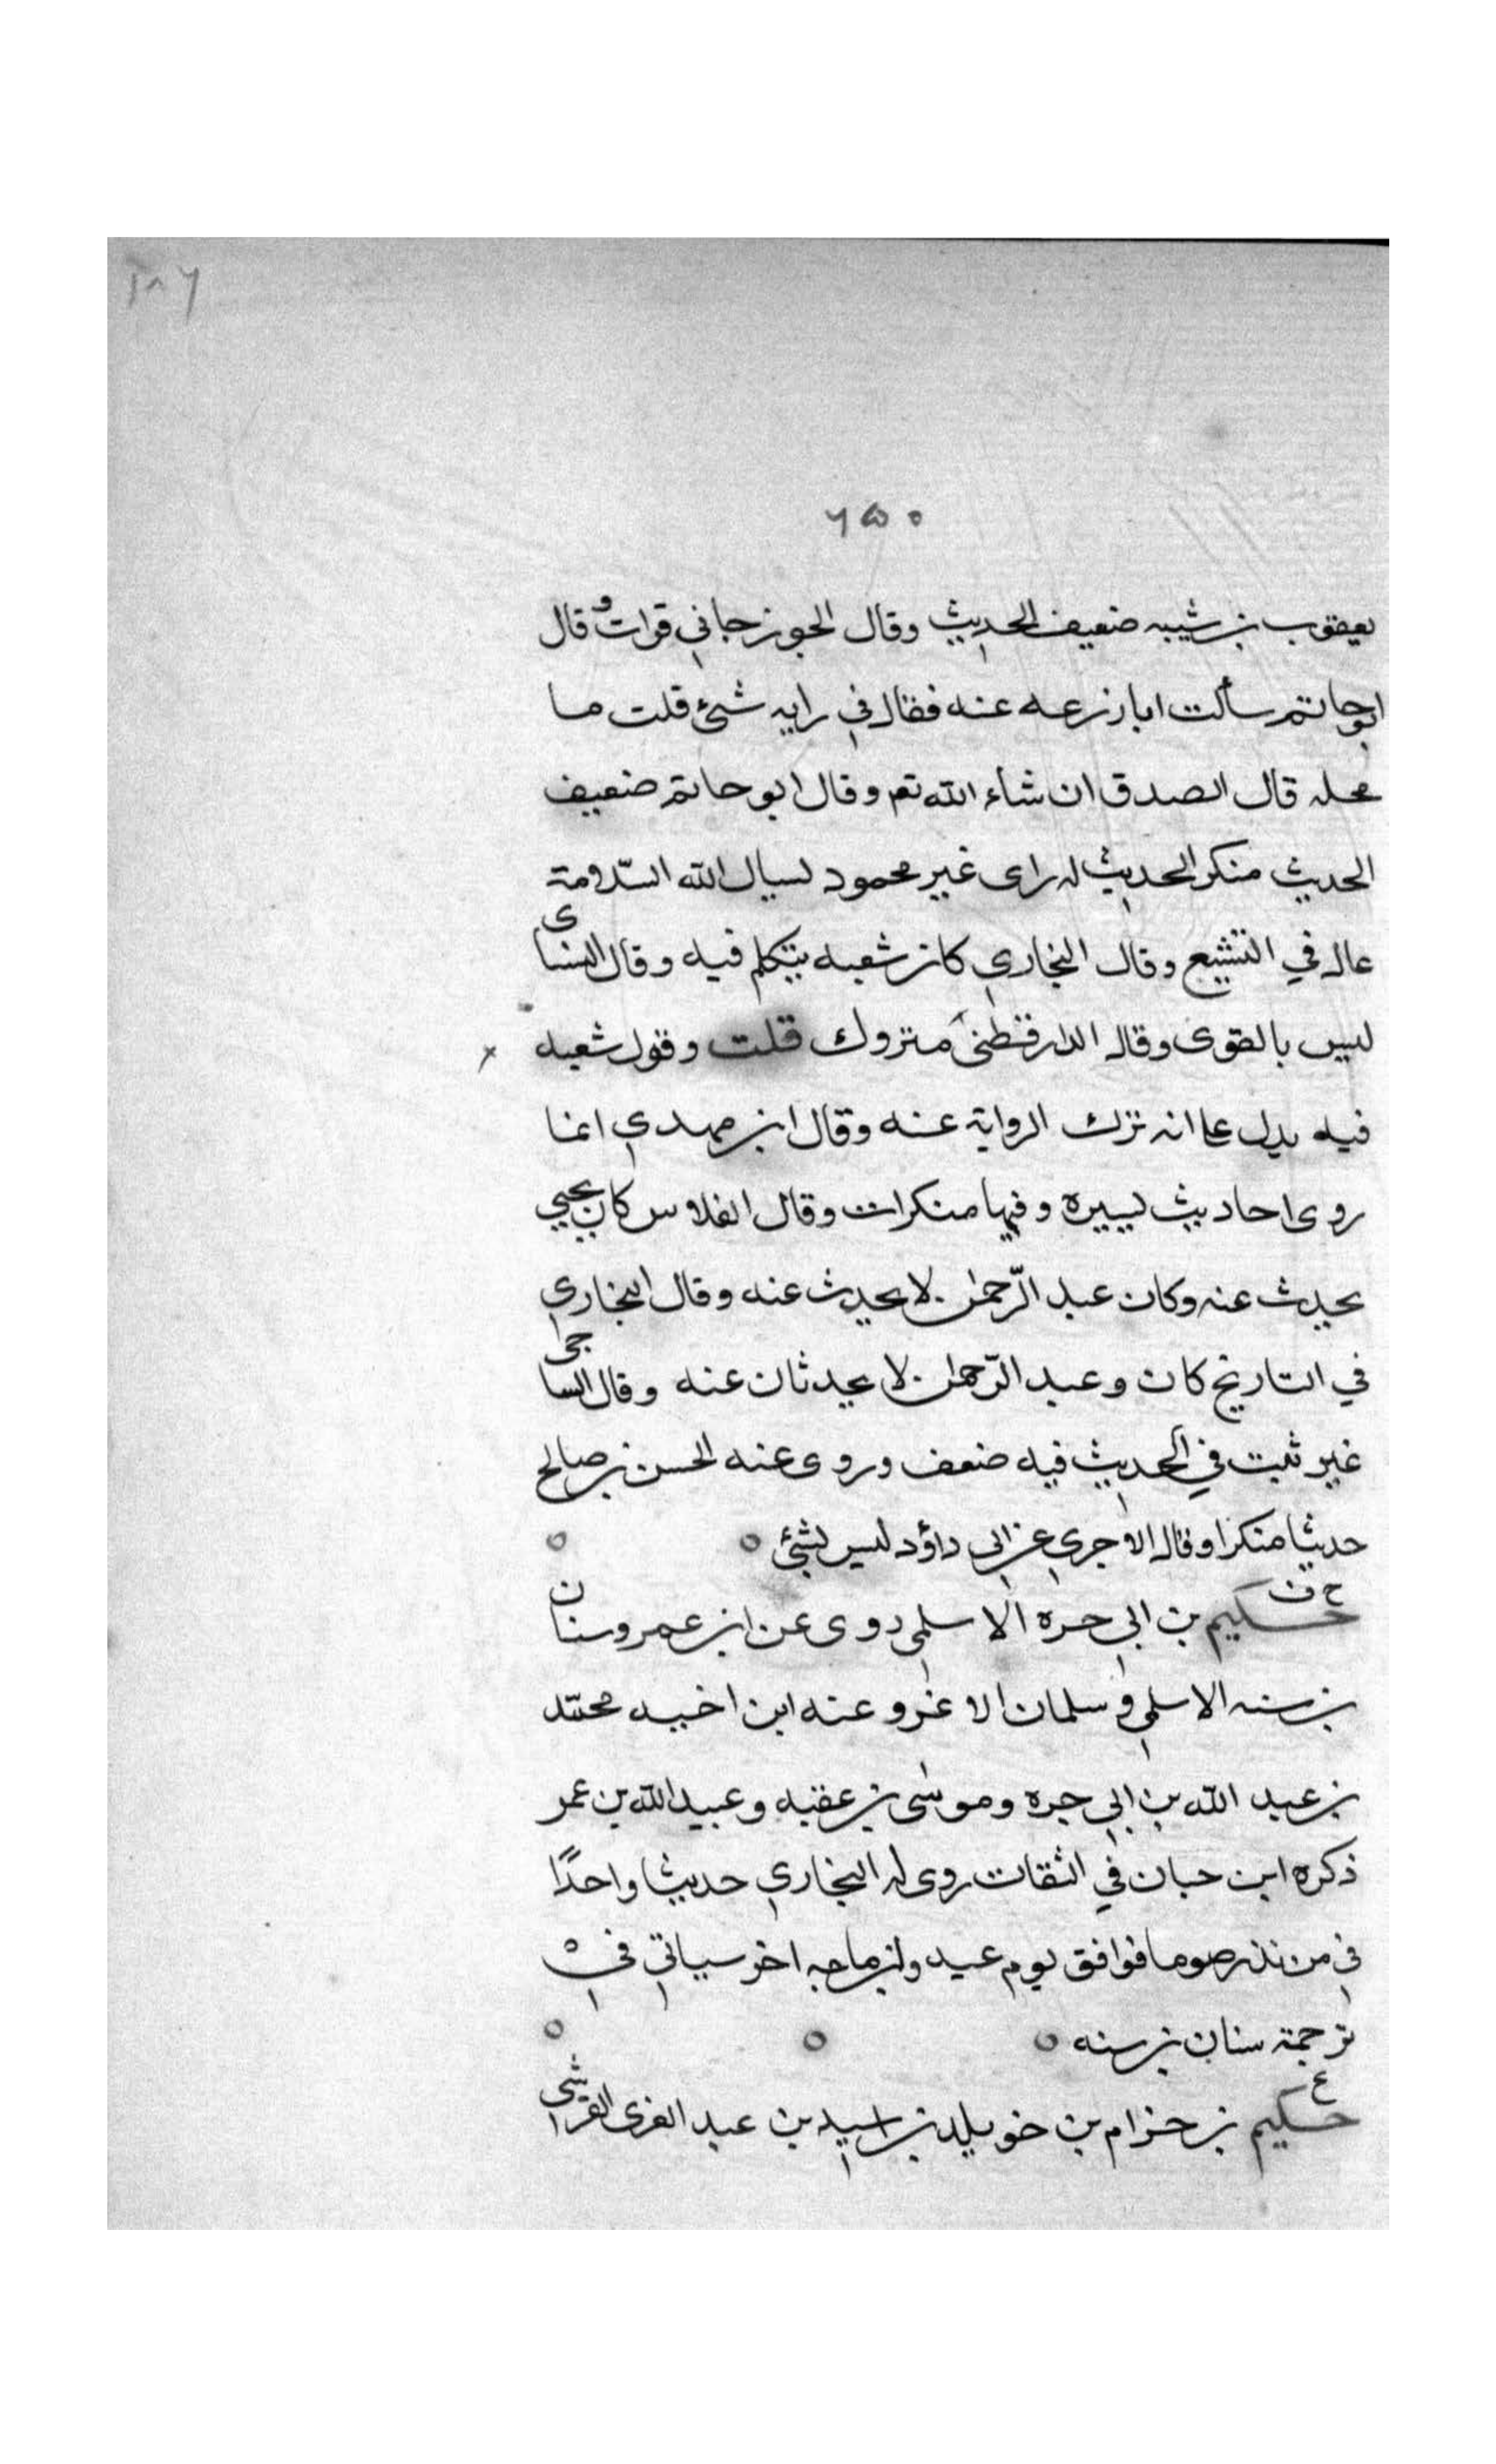 ١٨٦
٦٥٠
يعقوب بن شيبه ضعيف الحديث وقال الجوزجاني قرات وقال
ابو حاتم سألت ابا زرعه عنه فقال في رايه شئ قلت ما
محله قال الصدق ان شاء الله تعم وقال ابو حاتم ضعيف
الحديث منكر الحديث له راى غير محمود نسيال الله السّلامة
غال في التشيع وقال البخاري كان شعبه يتكلم فيه وقال النساى
ليس بالقوى وقال الدارقطنى متروك قلت وقول شعبه
فيه يدل عا انه ترك الرواية عنه وقال ابن مهدي انما
روى احاديث يسيره وفيها منكرات وقال الفلاس كان يحيي
يحدث عنه وكان عبد الرّحمن لا يحدث عنه وقال البخاري
في التاريخ كان وعبد الرّحمن لا يحدثان عنه وقال الساجى
غير ثبت في الحديث فيه ضعف وروى عنه الحسن بن صالح
حديثا منكرا وقال الاجري عن ابى داؤد ليس بشئ
خ ق
حكيم بن ابي حره الاسلمى روى عن ابن عمر وسنان
بن سنه الاسلمي وسلمان الاغر وعنه ابن اخيه محمّد
بن عبد الله بن ابي حره وموسى بن عقبه وعبيد الله بن عمر
ذكره ابن حبان في الثقات روى له البخاري حديثا واحدًا
في من نذر صوما فوافق يوم عيد وابن ماجه اخر سياتي في
ترجمة سنان بن سنه
ع
حكيم بن حزام بن خويلد بن اسيد بن عبد العزى القرشى